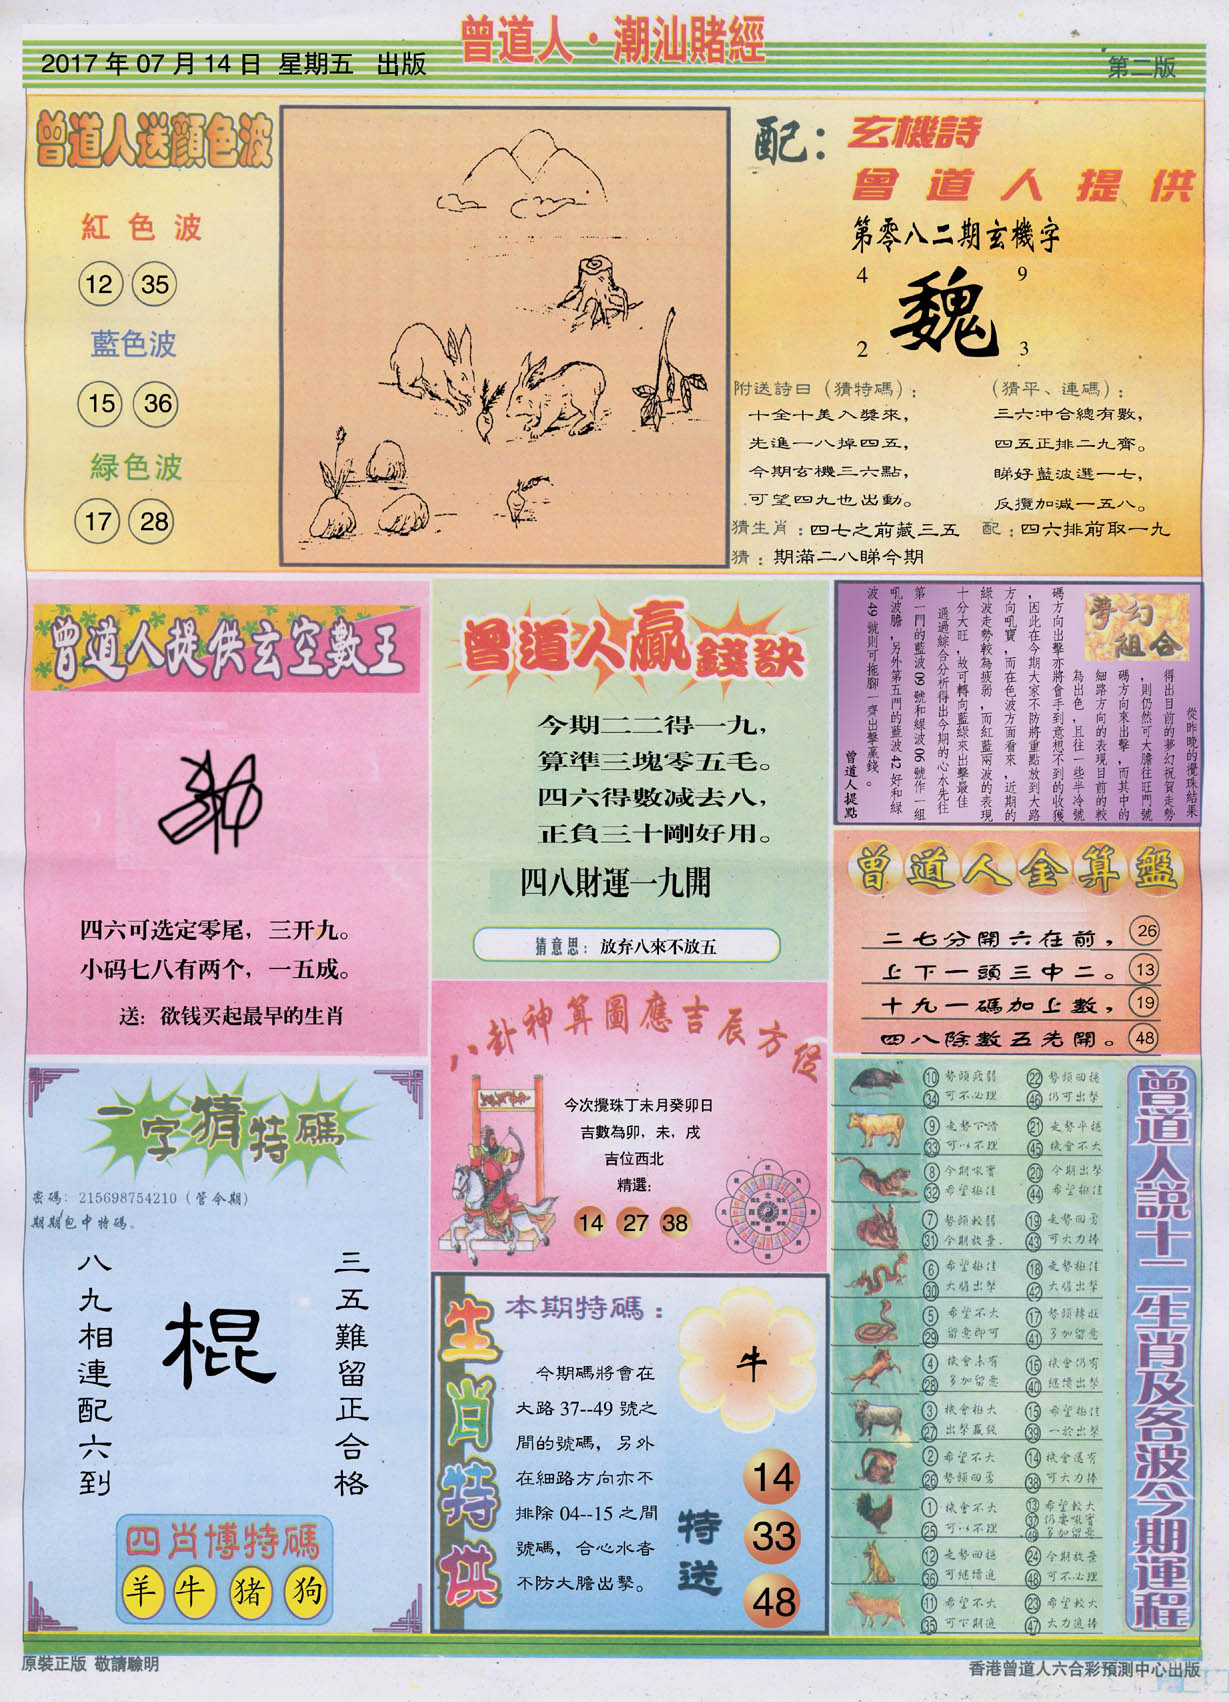 曾道人·潮汕賭經
2017年07月14日 星期五 出版
第二版
曾道人送顏色波
紅色波
12 35
藍色波
15 36
緑色波
17 28
配：玄機詩
曾道人提供
第零八二期玄機字
4 9
魏
2 3
附送詩曰（猜特碼）：
十全十美入獎來，
先進一八掉四五，
今期玄機三六點，
可望四九也出動。
（猜平、連碼）：
三六冲合總有數，
四五正排二九齊。
睇好藍波選一七，
反攬加減一五八。
猜生肖：四七之前藏三五
配：四六排前取一九
猜：期滿二八睇今期
曾道人提供玄空數王
四六可选定零尾，三开九。
小码七八有两个，一五成。
送：欲钱买起最早的生肖
曾道人贏錢訣
今期二二得一九，
算準三塊零五毛。
四六得數减去八，
正負三十剛好用。
四八財運一九開
猜意思：放弃八來不放五
夢幻
組合
從昨晚的攪珠結果
得出目前的夢幻祝賀走勢
，則仍然可大膽往旺門號
碼方向來出擊，而其中的
細路方向的表現目前的較
為出色，且往一些半冷號
碼方向出擊亦將會手到意想不到的收獲
，因此在今期大家不防將重點放到大路
方向吼寶，而在色波方面看來，近期的
綠波走勢較為疲弱，而紅藍兩波的表現
十分大旺，故可轉向藍綠來出擊最佳
通過綜合分析得出今期的心水先往
第一門的藍波09號和緑波06號作一組
吼波膽，另外第五門的藍波42好和綠
波49號則可拖腳一齊出擊贏錢。
曾道人提點
曾道人金算盤
二七分開六在前， 26
上下一頭三中二。 13
十九一碼加上數， 19
四八除數五先開。 48
八卦神算圖應吉辰方位
今次攪珠丁未月癸卯日
吉數為卯，未，戌
吉位西北
精選：
14 27 38
一字猜特碼
密碼：215698754210（管今期）
期期包中特碼。
八九相連配六到
棍
三五難留正合格
四肖博特碼
羊 牛 猪 狗
生肖特供
本期特碼：
今期碼將會在
大路37--49號之
間的號碼，另外
在細路方向亦不
排除04--15之間
號碼，合心水者
不防大膽出擊。
牛
特送
14
33
48
曾道人説十二生肖及各波今期運程
10 勢頭疲弱 22 勢頭回穩
34 可不必理 46 仍可出擊
9 走勢下滑 21 走勢平穩
33 可以不理 45 機會不大
8 今期吼寶 20 今期出擊
32 希望極佳 44 希望極佳
7 勢頭較弱 19 走勢回勇
31 今期放棄 43 可大力捧
6 希望極佳 18 走勢極佳
30 大膽出擊 42 大膽出擊
5 希望不大 17 勢頭轉旺
29 留意即可 41 多加留意
4 機會未有 16 機會仍有
28 多加留意 40 繼續出擊
3 機會極大 15 希望極佳
27 出擊贏錢 39 一於出擊
2 希望不大 14 機會還有
26 勢頭回勇 38 可大力捧
1 機會不大 13 希望較大
25 可以不理 37 仍要吼實
49 多加留意
12 走勢回穩 24 今期放棄
36 可繼續追 48 可不必理
11 希望不大 23 希望較大
35 可下期追 47 大力追捧
原裝正版 敬請驗明
香港曾道人六合彩預測中心出版